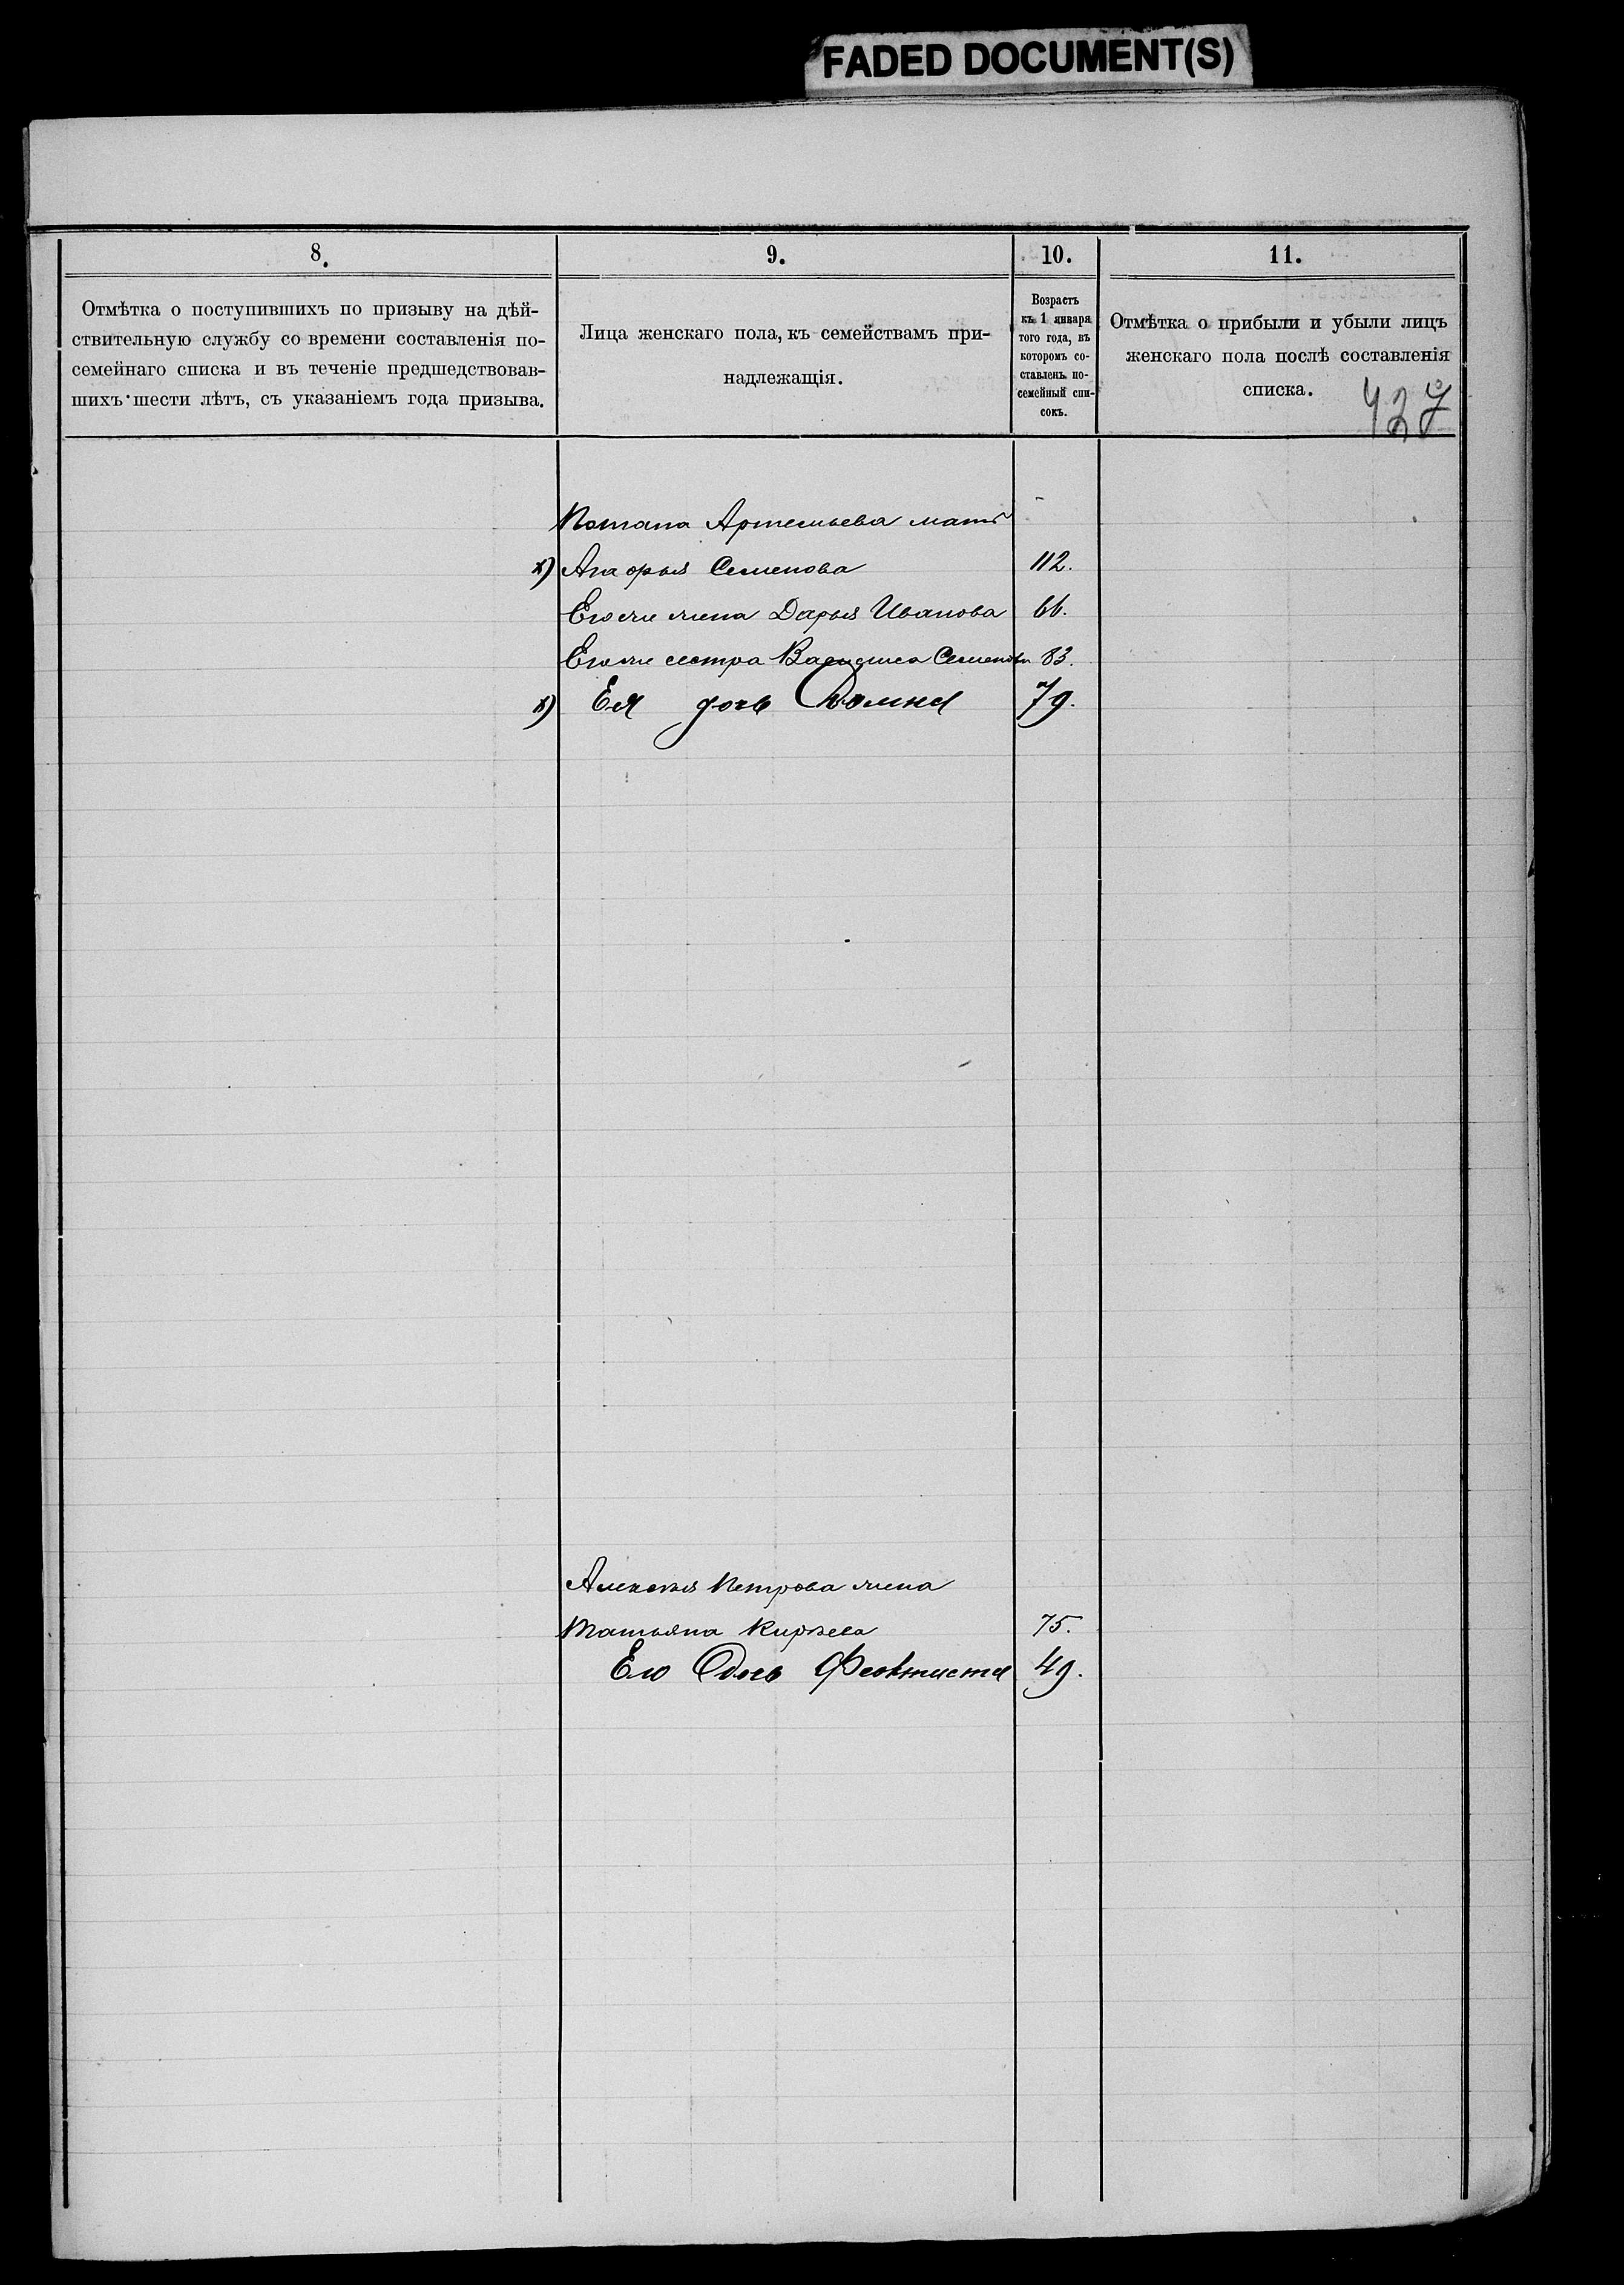 FADED DOCUMENT(S)
8.
9.
10.
11.
Отмѣтка о поступившихъ по призыву на дѣй-
ствительную службу со времени составленія по-
семейнаго списка и въ теченіе предшедствовав-
шихъ шести лѣтъ, съ указаніемъ года призыва.
Лица женскаго пола, къ семействамъ при-
надлежащія.
Возрастъ
къ 1 января
того года, въ
которомъ со-
ставленъ по-
семейный спи-
сокъ.
Отмѣтка о прибыли и убыли лицъ
женскаго пола послѣ составленія
списка.
427
Потапа Артемьева мать
х) Семенова 112.
Его же жена Дарья Иванова 66.
Его же сестра Василиса Семенова 83.
х) Ея дочь Домна 79.
Алексѣя Петрова жена
Татьяна Кирѣева 75.
Его дочь Феоктиста 49.